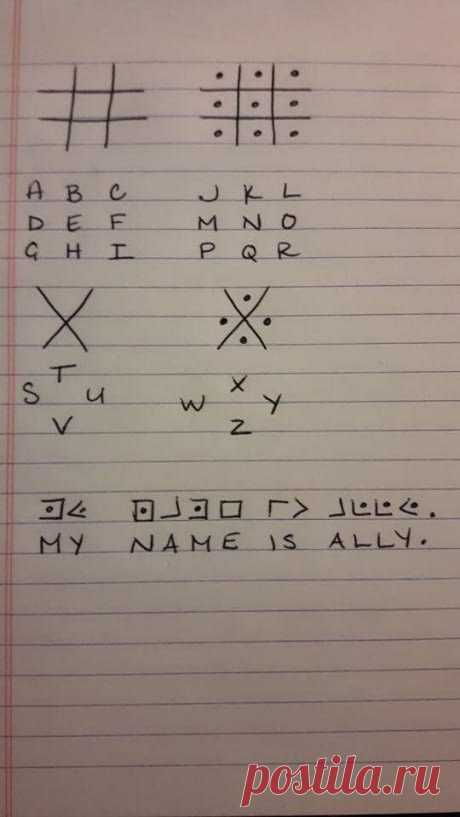 A B C J K L
D E F M N O
G H I P Q R
T X
S U W Y
V Z
MY NAME IS ALLY.
postila.ru